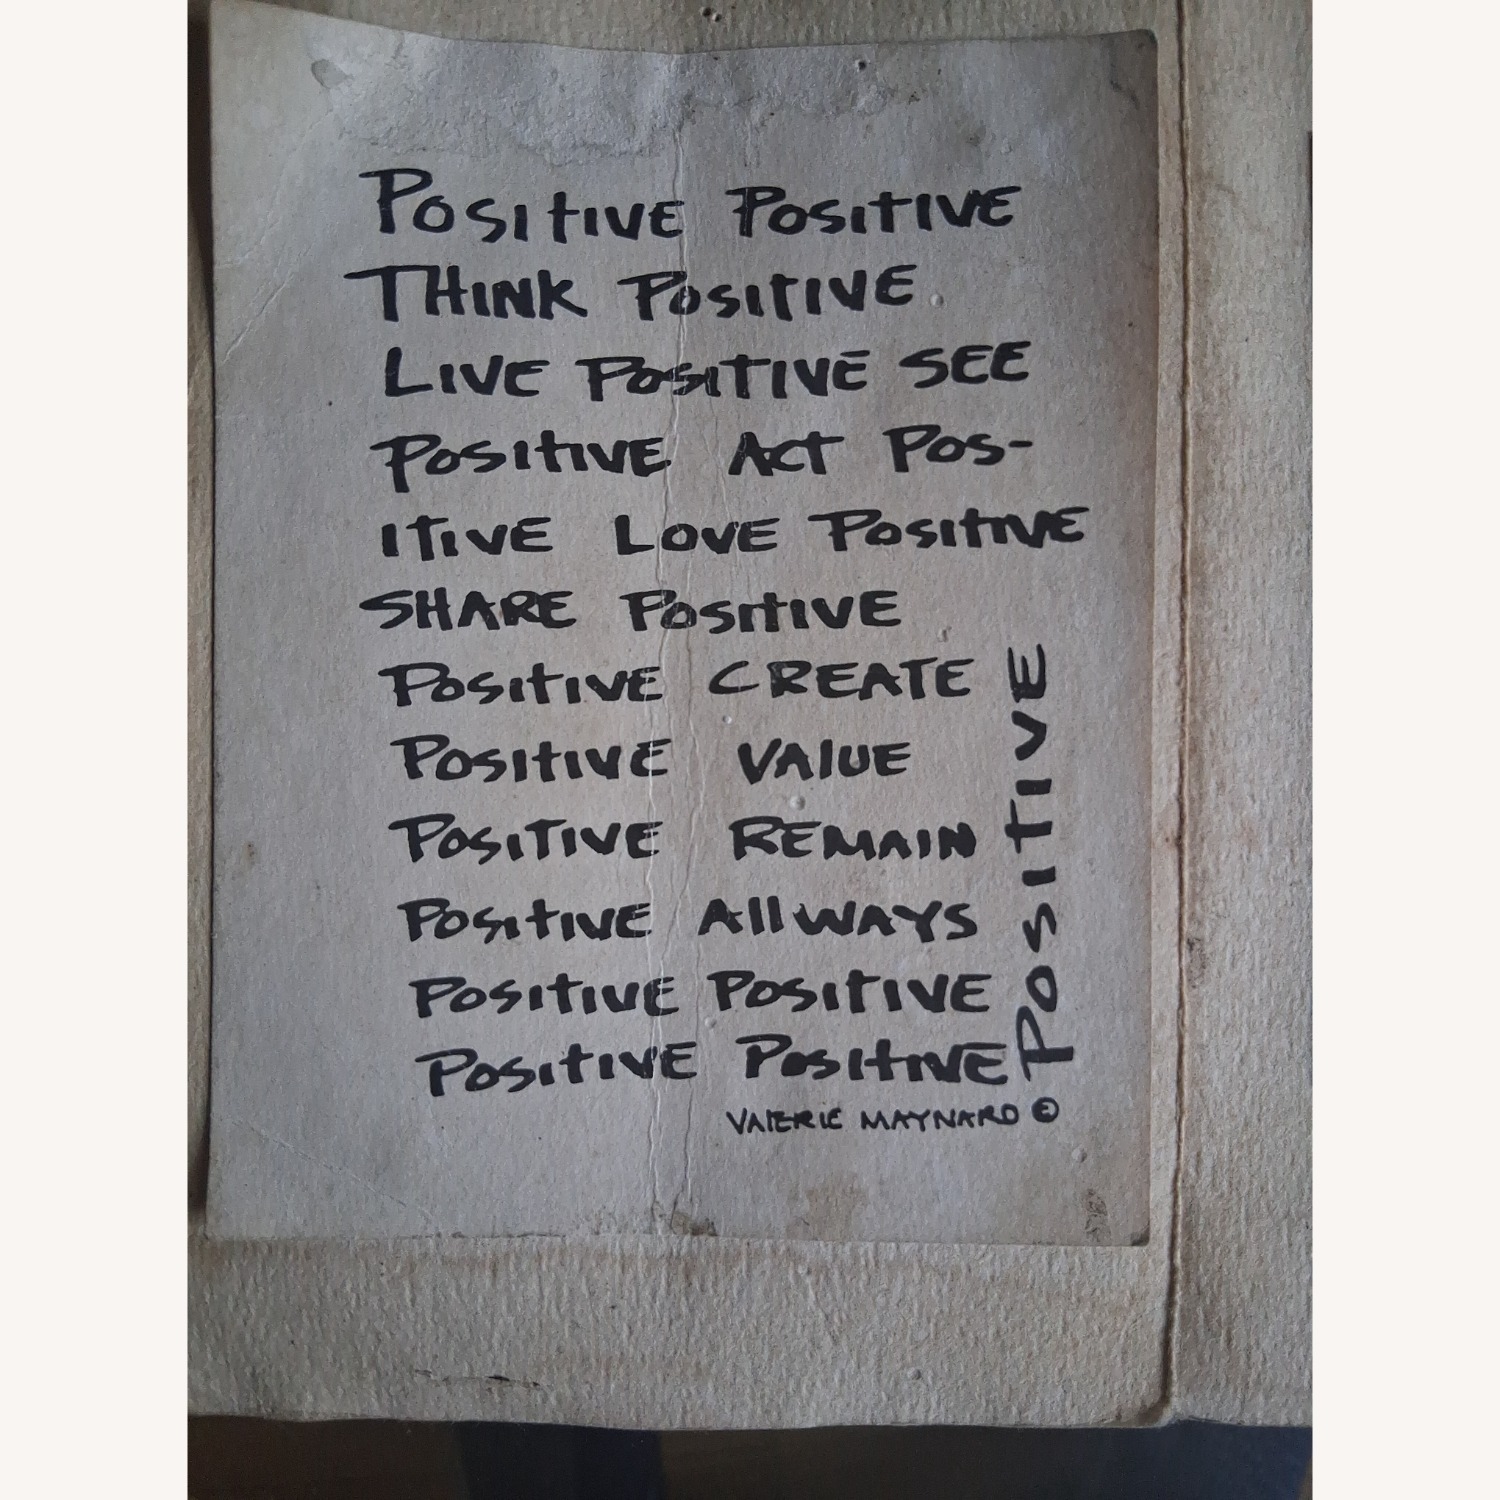 POSITIVE POSITIVE
THINK POSITIVE
LIVE POSITIVE SEE
POSITIVE ACT POS-
ITIVE LOVE POSITIVE
SHARE POSITIVE
POSITIVE CREATE
POSITIVE VALUE
POSITIVE REMAIN
POSITIVE ALLWAYS
POSITIVE POSITIVE
POSITIVE POSITIVE
POSITIVE
VALERIE MAYNARD ©